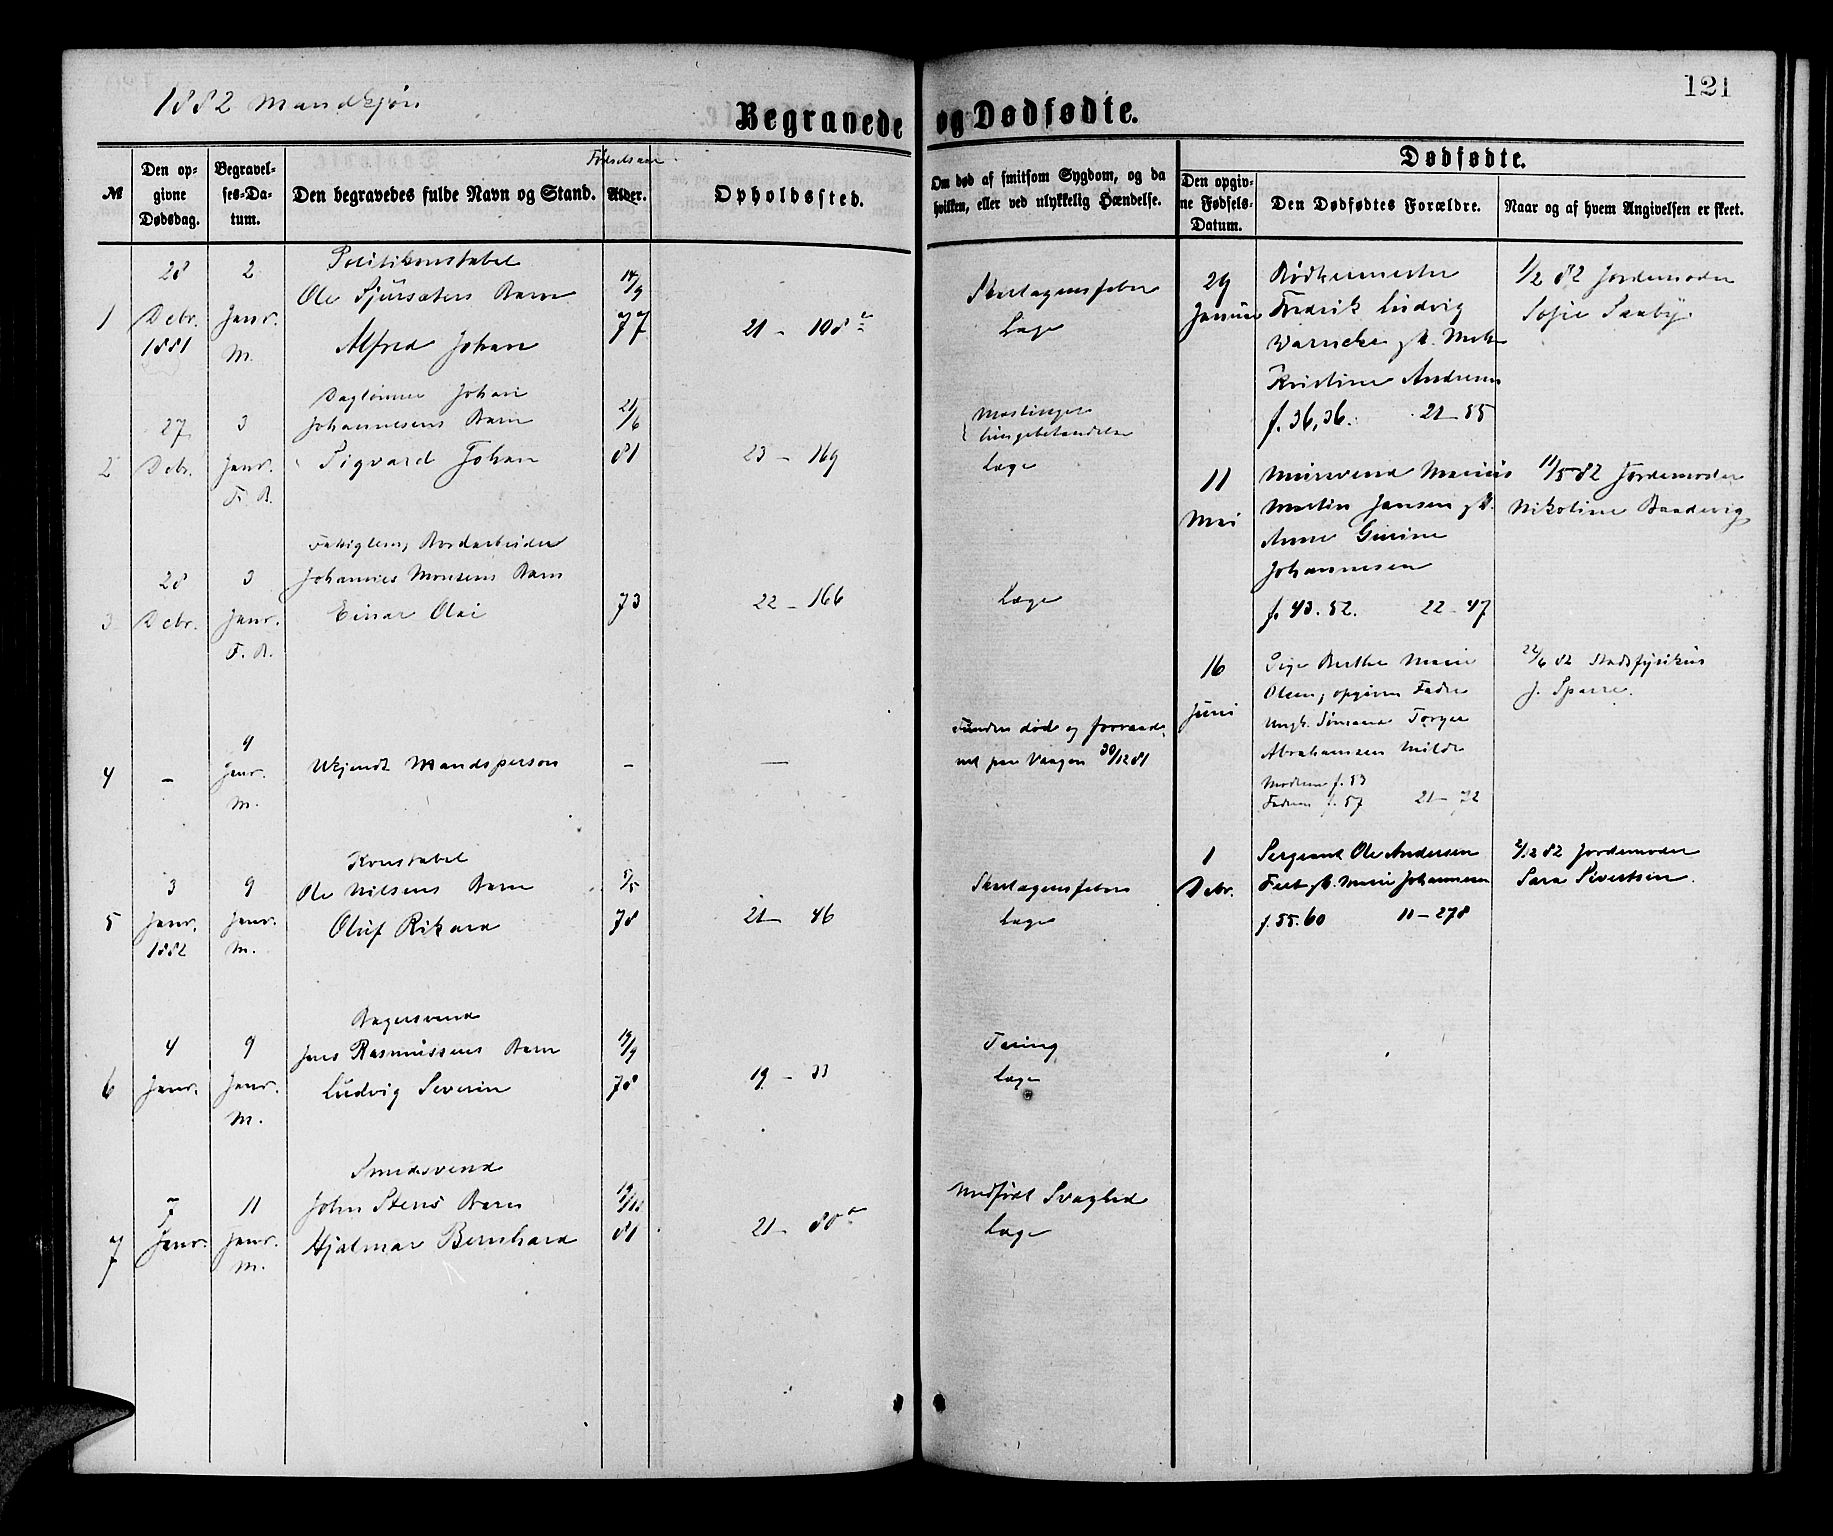 121
1882 Mandkjøn
Begravede og Dødfødte.
№
Den opgivne Dødsdag.
Begravelses-Datum.
Den begravedes fulde Navn og Stand.
Fødselsaar
Alder.
Opholdssted.
Om død af smitsom Sygdom, og da
hvilken, eller ved ulykkelig Hændelse.
Dødfødte.
Den opgivne Fødsels-Datum.
Den Dødfødtes Forældre.
Naar og af hvem Angivelsen er skeet.
28 2 Politikonstabel
Ole Børn
1 Debr. Janr. 14/9 77 21 - 108
1881 M. Alfred Johan
Skarlagensfeber
Læge
Daglønner Johan
27 3 Johannesens Barn 21/6
2 Debr. Janr. Sigvard Johan 81 23 - 169
F. A.
Mæslinger
Læge
Johannes Monsens Barn
28 3
3 Debr. Janr. Einar Olai 73 22 - 166
F. A.
Læge
9
Janr.
4 - M. Ukjendt Mandsperson - -
Funden død og
paa Vaagen 30/12 81
Konstabel
3 9 Ole Nilsens Barn 5/5
5 Janr. Janr. Oluf Rikard 78 21 - 46
1882 M.
Skarlagensfeber
Læge
Bagersvend
4 9 Jens Rasmussens Barn 19/9
6 Janr. Janr. Ludvig Severin 78 19 - 33
M.
Tæring
Læge
Smedsvend
7 11 John Stens Barn 19/12
7 Janr. Janr. Hjalmar Bernhard 81 21 - 80
M.
Medfødt Svaghed
Læge
29
Januar
Bødkermester
Fredrik Ludvig
Warncke
Kristine Andrea
f. 36, 36. 21 - 55
1/2 82 Jordemoder
Sofie Saaby
11
Mai
Murersvend Marius
Martin Jansen
Anne Gurine
Johannesen
f. 43. 52. 22 - 47
11/5 82 Jordemoder
Nikoline Baadevig
16
Juni
Pige Berthe Marie
Olsen, opgiven Fader
Ungk. Sømand Torger
Abrahamsen Milde
Moderen f. 53
Faderen f. 57 21 - 72
22/6 82 Stadsfysikus
J. Sparre.
1
Debr.
Sergeant Ole Andersen
Marie Johannesen
f. 55. 60 11 - 278
2/12 82 Jordemoder
Sara Sivertsen.